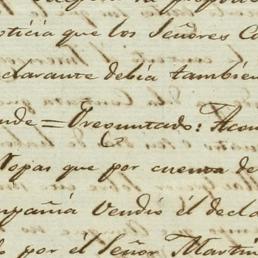 noticia que los Señores Co
clarante debia tambien
nde = Preguntado: Acon
ropas que por cuenta de
mpañia vendió el decla
por el Señor Martin